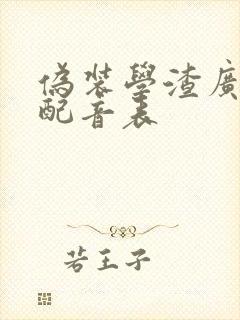 偽裝學渣廣
配音表
若王子